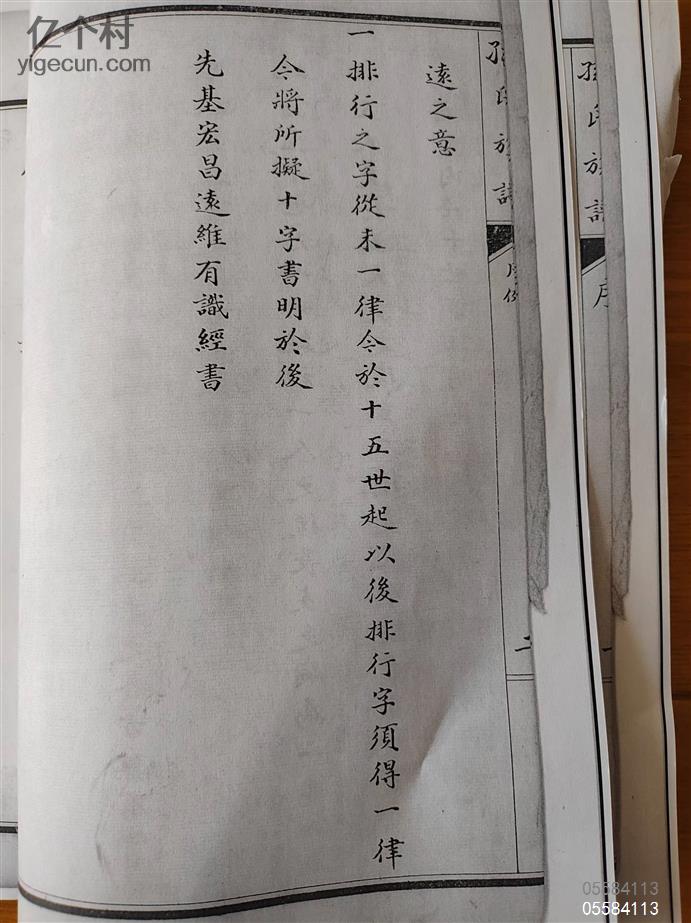 亿个村
yigecun.com
孫氏族譜
序
一
孫氏族譜
序例
二
遠之意
一排行之字從未一律今於十五世起以後排行字須得一律
今將所擬十字書明於後
先基宏昌遠維有識經書
05584113
05584113